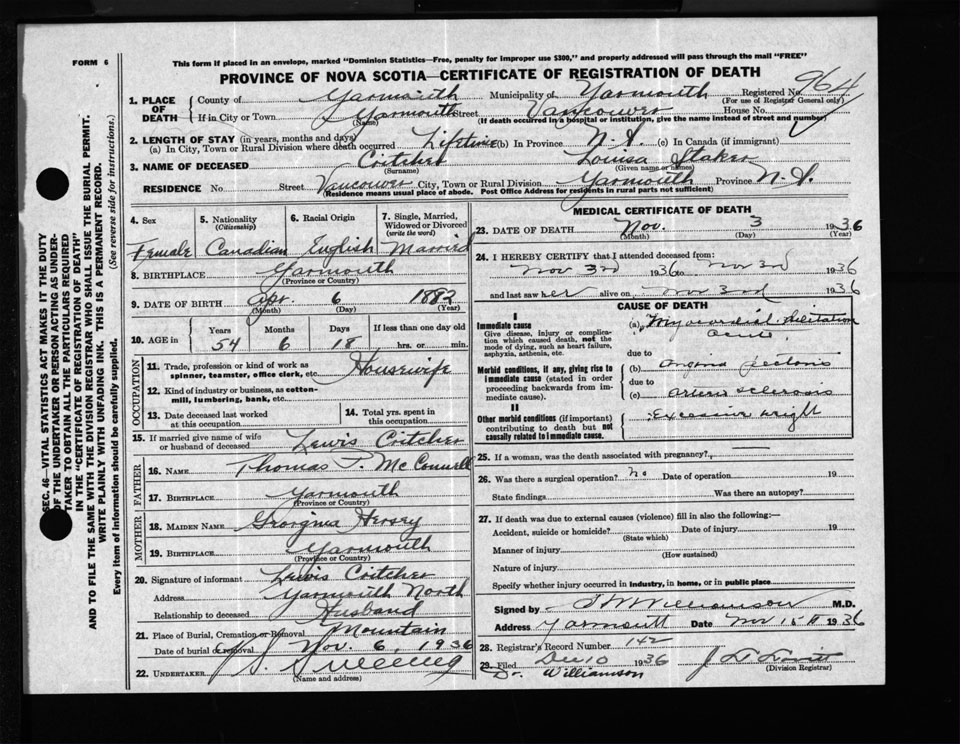 FORM 6
This form if placed in an envelope, marked "Dominion Statistics—Free, penalty for improper use $300," and properly addressed will pass through the mail "FREE"
PROVINCE OF NOVA SCOTIA—CERTIFICATE OF REGISTRATION OF DEATH
SEC. 46—VITAL STATISTICS ACT MAKES IT THE DUTY
OF THE UNDERTAKER OR PERSON ACTING AS UNDER-
TAKER TO OBTAIN ALL THE PARTICULARS REQUIRED
IN THE "CERTIFICATE OF REGISTRATION OF DEATH"
AND TO FILE THE SAME WITH THE DIVISION REGISTRAR WHO SHALL ISSUE THE BURIAL PERMIT.
WRITE PLAINLY WITH UNFADING INK. THIS IS A PERMANENT RECORD.
Every item of information should be carefully supplied. (See reverse side for instructions.)
1. PLACE OF DEATH County of Yarmouth Municipality of Yarmouth Registered No. 964
(For use of Registrar General only)
If in City or Town Yarmouth Street Vancouver House No.
(Name) (If death occurred in a hospital or institution, give the name instead of street and number)
2. LENGTH OF STAY (in years, months and days)
(a) In City, Town or Rural Division where death occurred Lifetime (b) In Province N.S. (c) In Canada (if immigrant)
3. NAME OF DECEASED Critcher Louisa Staker
(Surname) (Given name or names)
RESIDENCE No Street Vancouver City, Town or Rural Division Yarmouth Province N.S.
(Residence means usual place of abode. Post Office Address for residents in rural parts not sufficient)
4. Sex 5. Nationality (Citizenship) 6. Racial Origin 7. Single, Married, Widowed or Divorced (write the word)
Female Canadian English Married
8. BIRTHPLACE Yarmouth
(Province or Country)
9. DATE OF BIRTH Apr. 6 1882
(Month) (Day) (Year)
10. AGE in Years Months Days If less than one day old
54 6 18 hrs. or min.
OCCUPATION
11. Trade, profession or kind of work as spinner, teamster, office clerk, etc. Housewife
12. Kind of industry or business, as cotton-mill, lumbering, bank, etc.
13. Date deceased last worked at this occupation
14. Total yrs. spent in this occupation
15. If married give name of wife or husband of deceased Lewis Critcher
FATHER
16. NAME Thomas P. McConnell
17. BIRTHPLACE Yarmouth
(Province or Country)
MOTHER
18. MAIDEN NAME Georgina Hersey
19. BIRTHPLACE Yarmouth
(Province or Country)
20. Signature of informant Lewis Critcher
Address Yarmouth North
Relationship to deceased Husband
21. Place of Burial, Cremation or Removal Mountain
Date of burial or removal Nov. 6, 1936
22. UNDERTAKER Sweeney
(Name and address)
MEDICAL CERTIFICATE OF DEATH
23. DATE OF DEATH Nov. 3 1936
(Month) (Day) (Year)
24. I HEREBY CERTIFY that I attended deceased from:
Nov 3rd 1936 to Nov 3rd 1936
and last saw her alive on Nov 3rd 1936
CAUSE OF DEATH
I
Immediate cause
Give disease, injury or complication which caused death, not the mode of dying, such as heart failure, asphyxia, asthenia, etc.
(a) Myocardial Dilitation
Acute
due to
Morbid conditions, if any, giving rise to immediate cause (stated in order proceeding backwards from immediate cause).
(b) Angina Pectoris
due to
(c) Arterio sclerosis
II
Other morbid conditions (if important) contributing to death but not causally related to immediate cause.
Excessive weight
25. If a woman, was the death associated with pregnancy?
26. Was there a surgical operation? no Date of operation 19
State findings Was there an autopsy?
27. If death was due to external causes (violence) fill in also the following:—
Accident, suicide or homicide? Date of injury 19
(State which)
Manner of injury
(How sustained)
Nature of injury
Specify whether injury occurred in industry, in home, or in public place
Signed by Williamson M.D.
Address Yarmouth Date Nov 15 1936
28. Registrar's Record Number 142
29. Filed Dec 10 1936
(Division Registrar)
Dr. Williamson